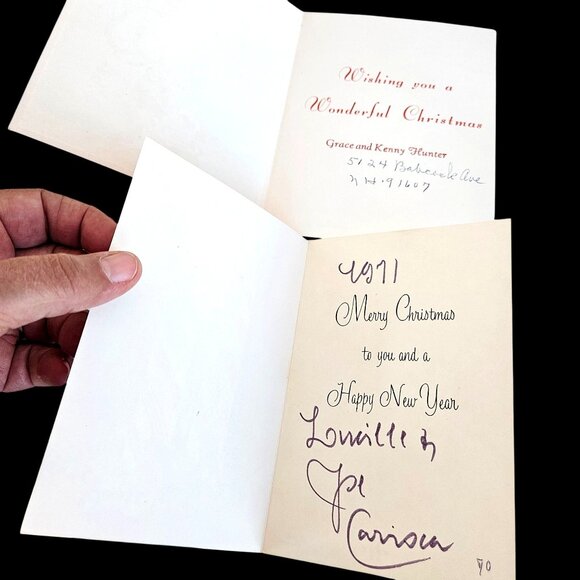 Wishing you a
Wonderful Christmas
Grace and Kenny Hunter
5124 Babcock Ave
N H. 91607
1971
Merry Christmas
to you and a
Happy New Year
Lucille &
Joe
Carioca
70